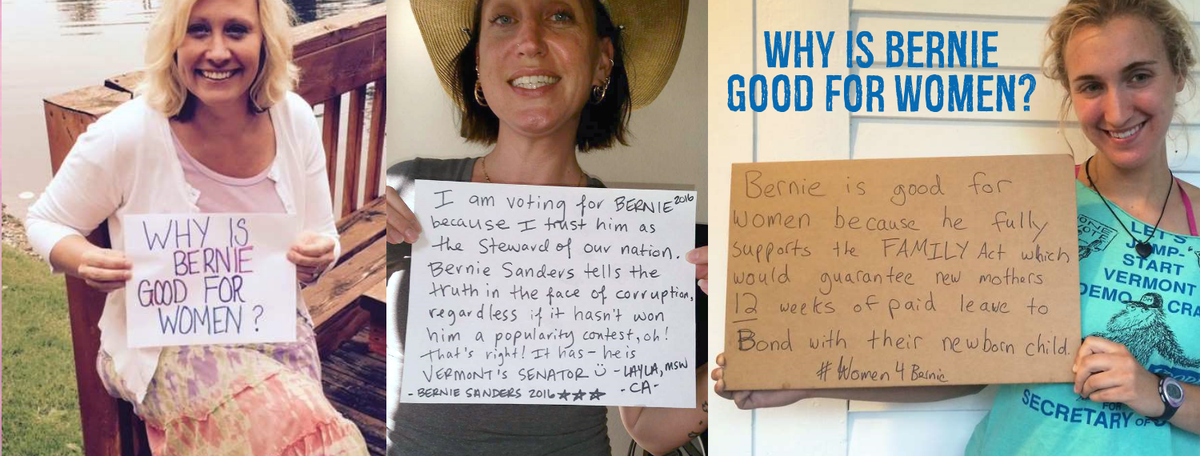 WHY IS
BERNIE
GOOD FOR
WOMEN?
I am voting for BERNIE 2016
because I trust him as
the Steward of our nation.
Bernie Sanders tells the
truth in the face of corruption,
regardless if it hasn't won
him a popularity contest, oh!
That's right! It has - he is
VERMONT'S SENATOR ☺ - LAYLA, MSW
- BERNIE SANDERS 2016 ★★★ - CA -
WHY IS BERNIE
GOOD FOR WOMEN?
Bernie is good for
women because he fully
supports the FAMILY Act which
would guarantee new mothers
12 weeks of paid leave to
Bond with their newborn child.
#Women4Bernie
LET'S
JUMP-
START
VERMONT
DEMO CRA
SECRETARY OF